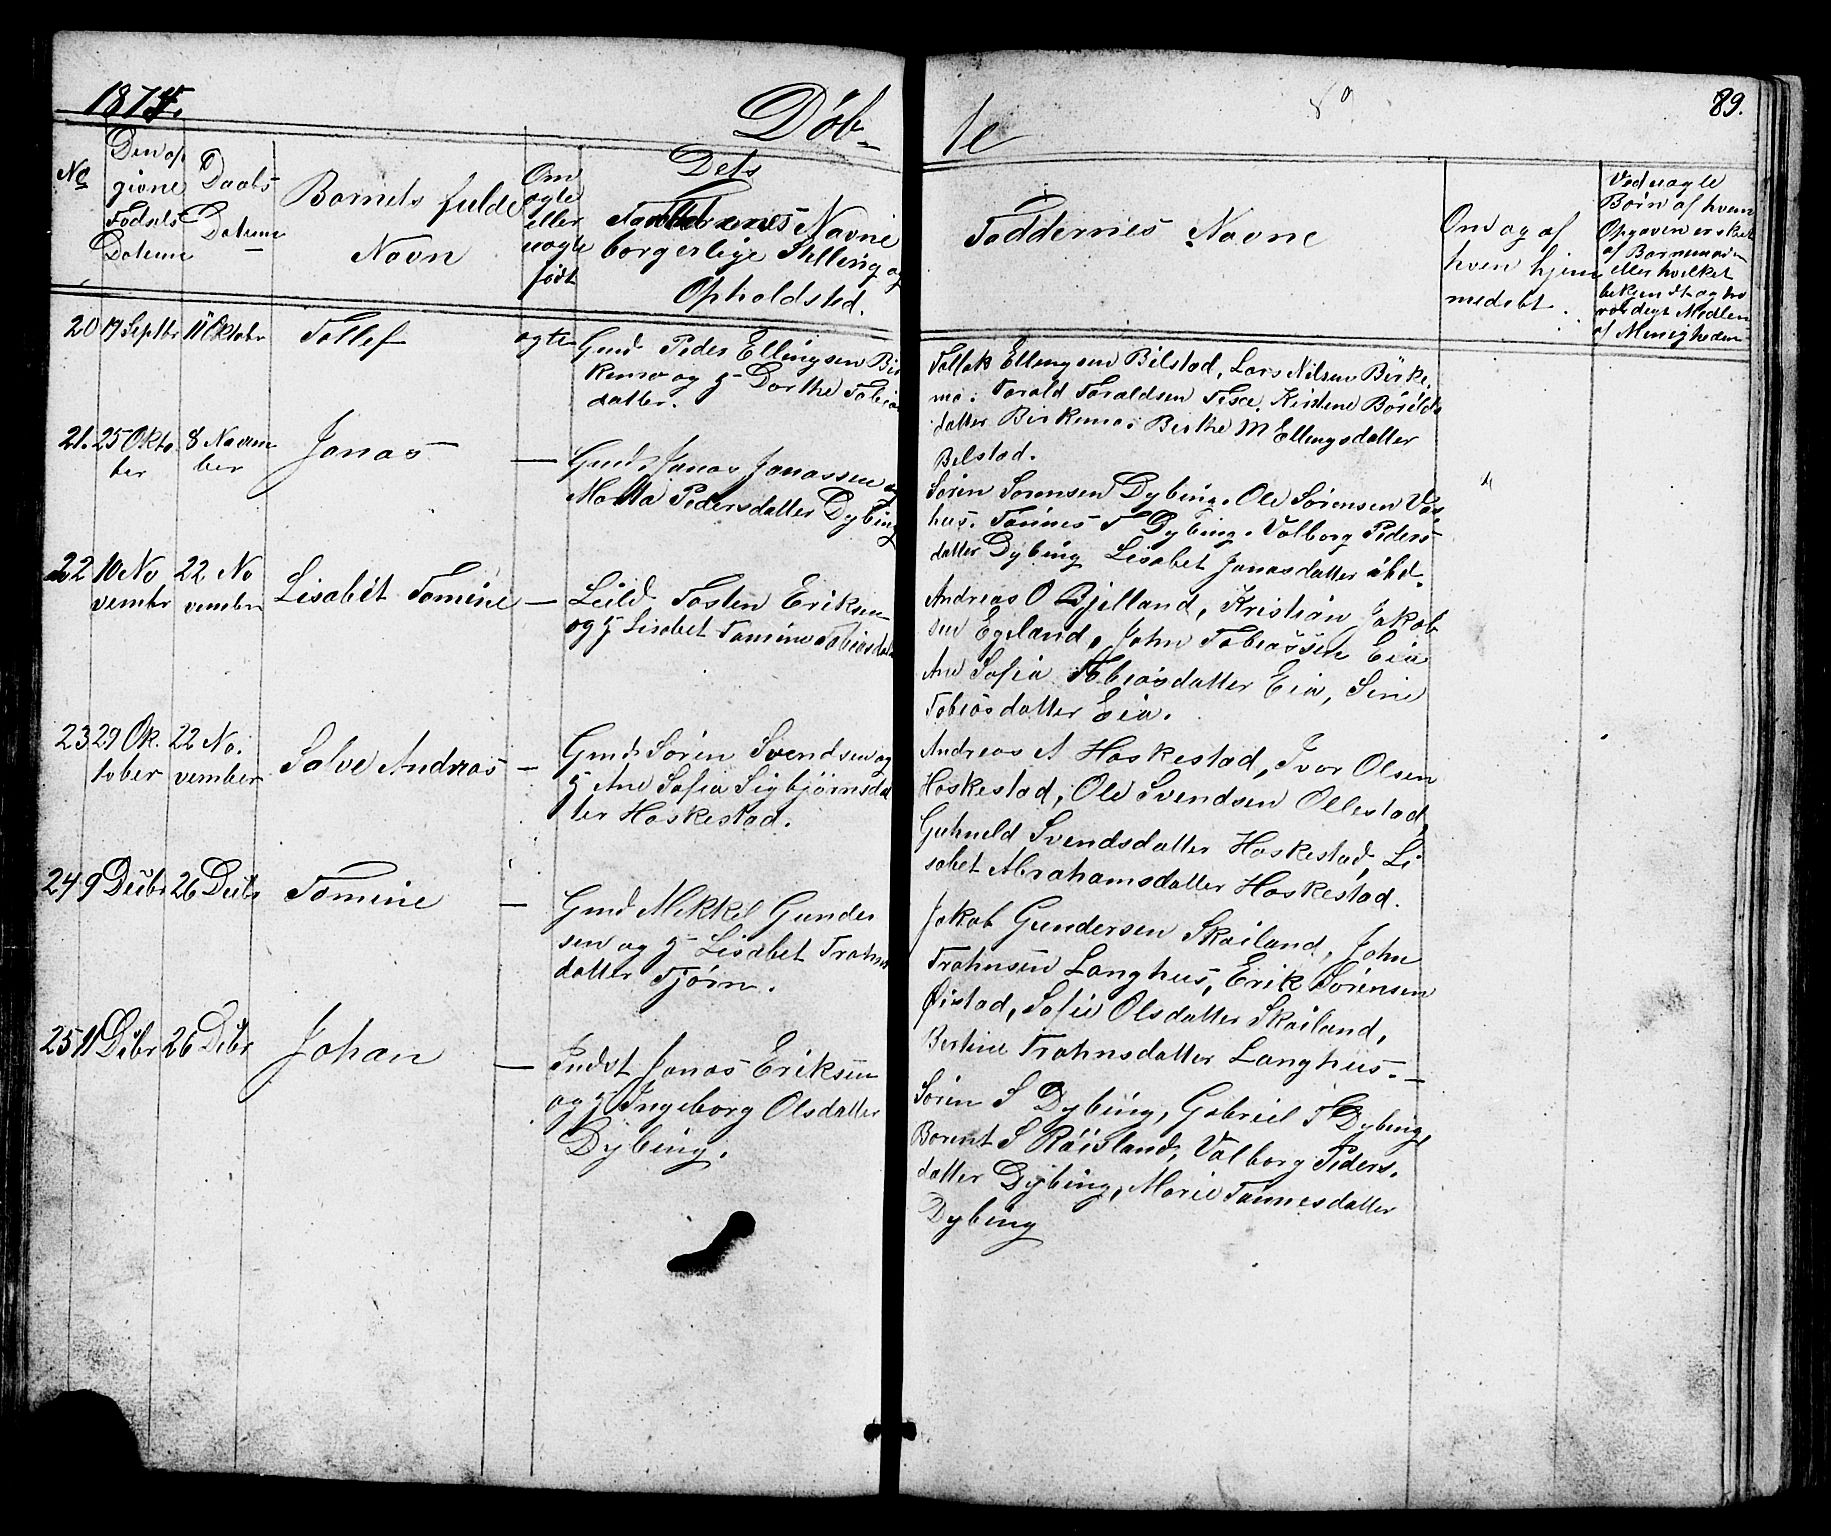 1874.
Døb-
te
89.
No
Den op
givne
Fødsels
Datum
Daabs
Datum
Barnets fulde
Navn
Om
ægte
eller
uægte
født
Dets
Forældrenes Navne
borgerlige Stilling og
Opholdsted.
Faddernes Navne
Om og af
hvem hjem
medøbt.
Ved uægte
Børn af hvem
Opgaven er skeet
af Barnemoder
eller hvilket
bekjendt og tro
værdigt Medlem
af Menigheden
20 17 Septbr 11 Oktobr Tollef ægte
Gmd Peder Ellingsen Bir
kemo og H Dorthe Tobias
datter.
Tollak Ellingsen Bilstad, Lars Nilsen Birke
mo. Torald Toraldsen Kirstene Bårds
datter Birkemo. Berthe M Ellingsdatter
Bilstad.
21. 25 Okto 8 Novem Jonas —
ber ber
Gmd Jonas Jonassen og
Martha Pedersdatter Dybing
Sören Sörensen Dybing. Ole Sörensen
hus. Tönnes T Dybing. Valborg Peders
datter Dybing Lisabet Jonasdatter ibd.
22 10 No 22 No Lisabet Tomine —
vembr vembr
Leild Tosten Eriksen
og H Lisabet Tomine Tobiasdatr
Andreas O Bjelland, Kristian Jakob
sen Egeland, John Tobiassen Eia
Ane Sofia Tobiasdatter Eia, Sine
Tobiasdatter Eia.
23 29 Ok. 22 No. Salve Andreas —
tober vember
Gmd Sören Svendsen og
H Ane Sofia Sigbjörnsdat
ter Haskestad.
Andreas A Haskestad, Ivar Olsen
Haskestad, Ole Svendsen Ollestad,
Guhneld Svendsdatter Haskestad, Li
sabet Abrahamsdatter Haskestad.
24 9 Debr 26 Debr Tomine —
Gmd Mikkel Gunder
sen og H Lisabet Trohns
datter Tjørn.
Jakob Gundersen Skailand, John
Trohnsen Langhus, Erik Sörensen
Öistad, Sofie Olsdatter Skailand,
Bertine Trohnsdatter Langhus. —
25 11 Debr 26 Debr Johan —
Indst Jonas Eriksen
og H Ingeborg Olsdatter
Dybing.
Sören S Dybing, Gabriel T Dybing,
Berent S Röisland, Valborg Peders.
datter Dybing, Marie Tönnesdatter
Dybing